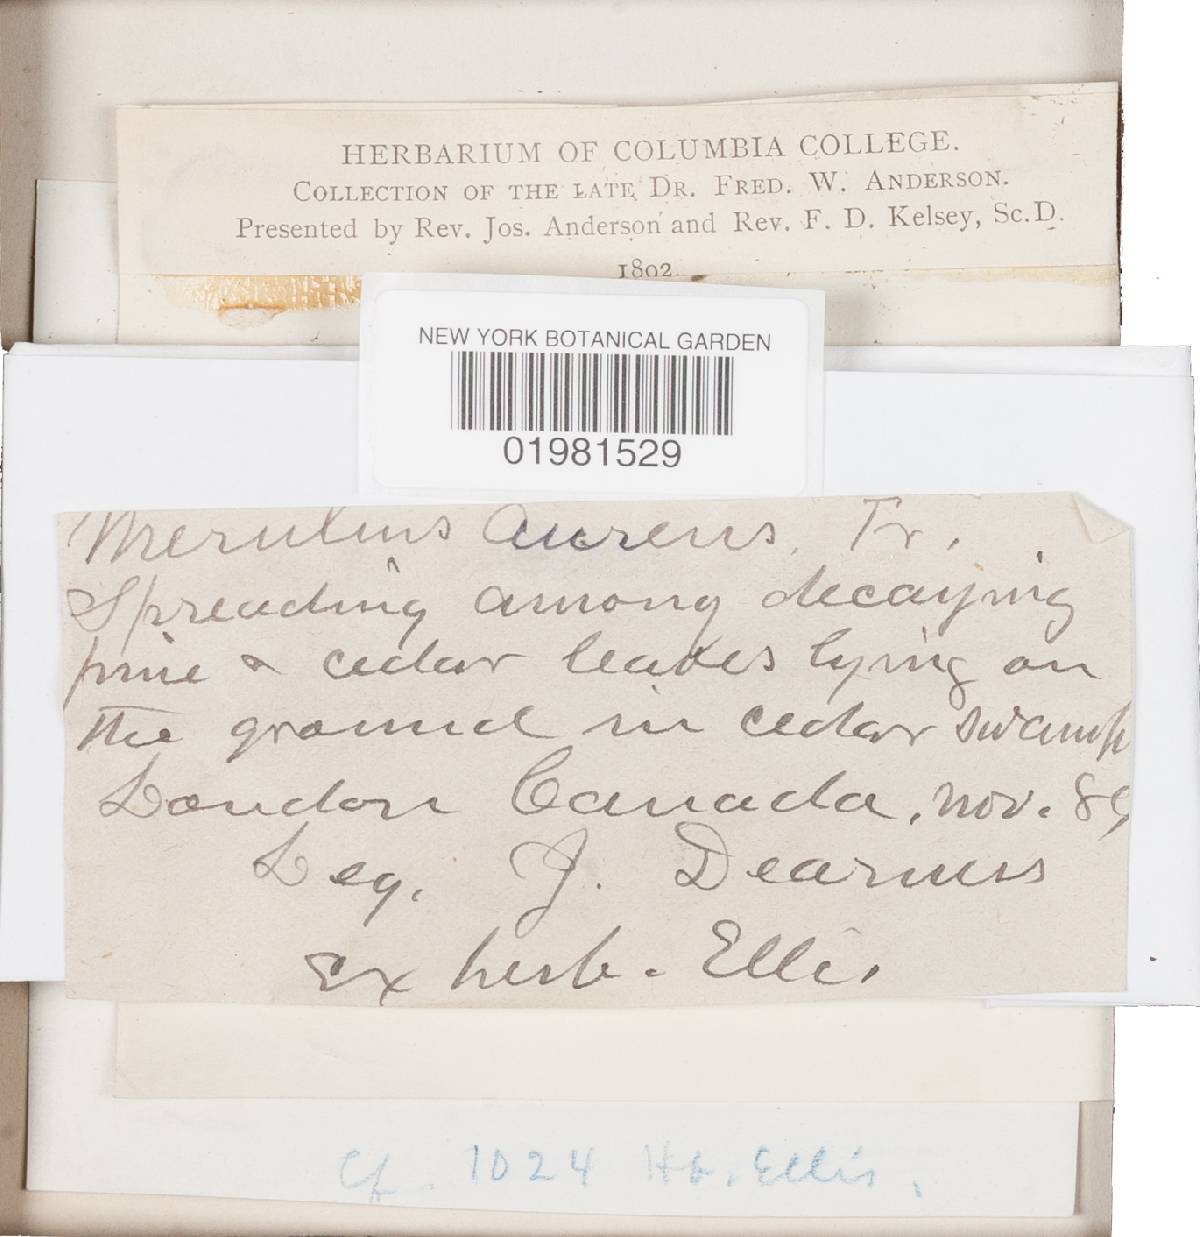 HERBARIUM OF COLUMBIA COLLEGE.
COLLECTION OF THE LATE DR. FRED. W. ANDERSON.
Presented by Rev. Jos. Anderson and Rev. F. D. Kelsey, Sc.D.
1892
NEW YORK BOTANICAL GARDEN
01981529
Merulius aureus, Fr.
Spreading among decaying
pine & cedar leaves lying on
the ground in cedar swamp
London Canada, Nov. 89
Leg. J. Dearness
Ex herb. Ellis.
Cf. 1024 Hb. Ellis.